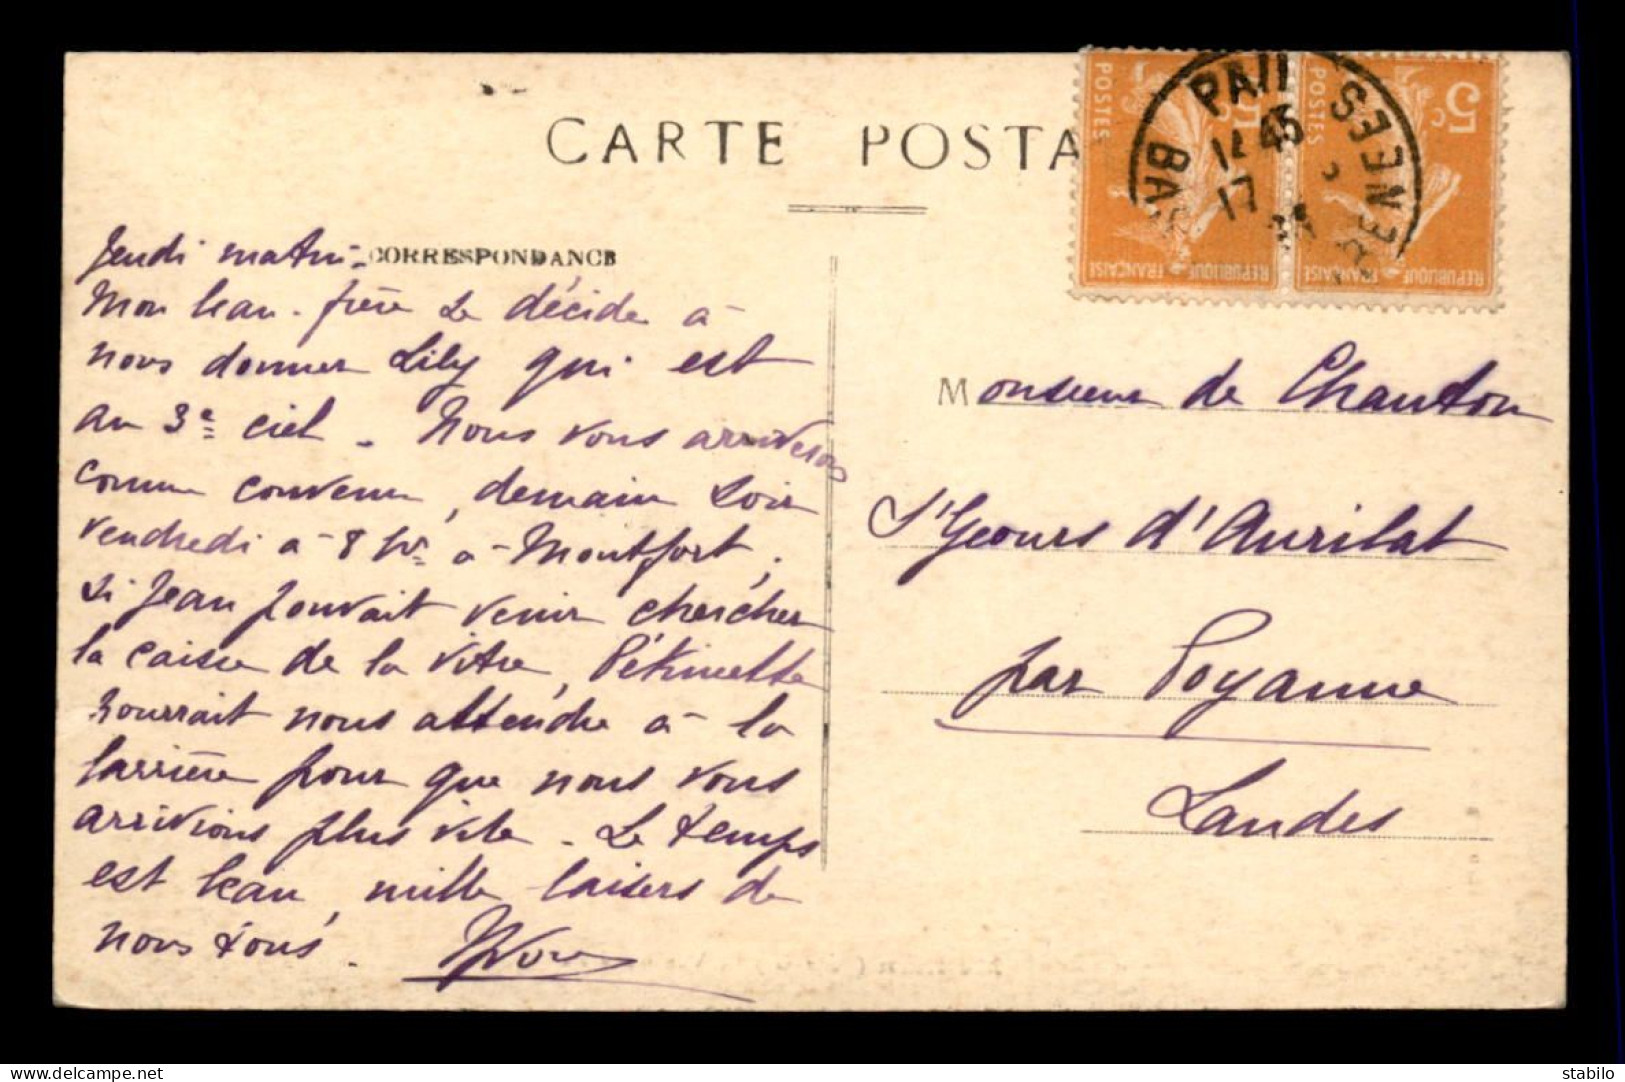 CARTE POSTA
CORRESPONDANCE
Jeudi matin -
Mon beau-frère se décide à
nous donner Lily qui est
au 3e ciel - Nous vous arriverons
comme convenu, demain soir
vendredi à 8 hrs à Montfort,
si Jean pouvait venir chercher
la caisse de la vitre, Pétkinette
pourrait nous attendre à la
barrière pour que nous vous
arrivions plus vite - Le temps
est beau, mille baisers de
nous tous.
5c
POSTES
REPUBLIQUE FRANÇAISE
5c
POSTES
REPUBLIQUE FRANÇAISE
PAU
12 45
17
BAS PYRENEES
Monsieur de Chauton
St Geours d'Auribat
par Poyanne
Landes
delcampe.net
stabilo